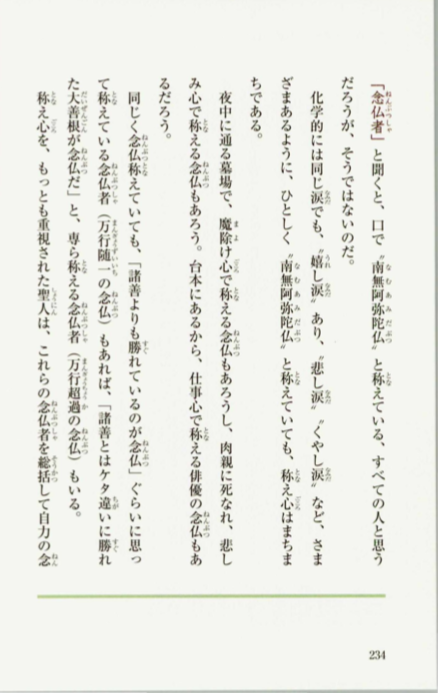 「念仏者」と聞くと、口で〝南無阿弥陀仏〟と称えている、すべての人と思う
だろうが、そうではないのだ。
化学的には同じ涙でも、〝嬉し涙〟あり、〝悲し涙〟〝くやし涙〟など、さま
ざまあるように、ひとしく〝南無阿弥陀仏〟と称えていても、称え心はまちま
ちである。
夜中に通る墓場で、魔除け心で称える念仏もあろうし、肉親に死なれ、悲し
み心で称える念仏もあろう。台本にあるから、仕事心で称える俳優の念仏もあ
るだろう。
同じく念仏称えていても、「諸善よりも勝れているのが念仏」ぐらいに思っ
て称えている念仏者（万行随一の念仏）もあれば、「諸善とはケタ違いに勝れ
た大善根が念仏だ」と、専ら称える念仏者（万行超過の念仏）もいる。
称え心を、もっとも重視された聖人は、これらの念仏者を総括して自力の念
234